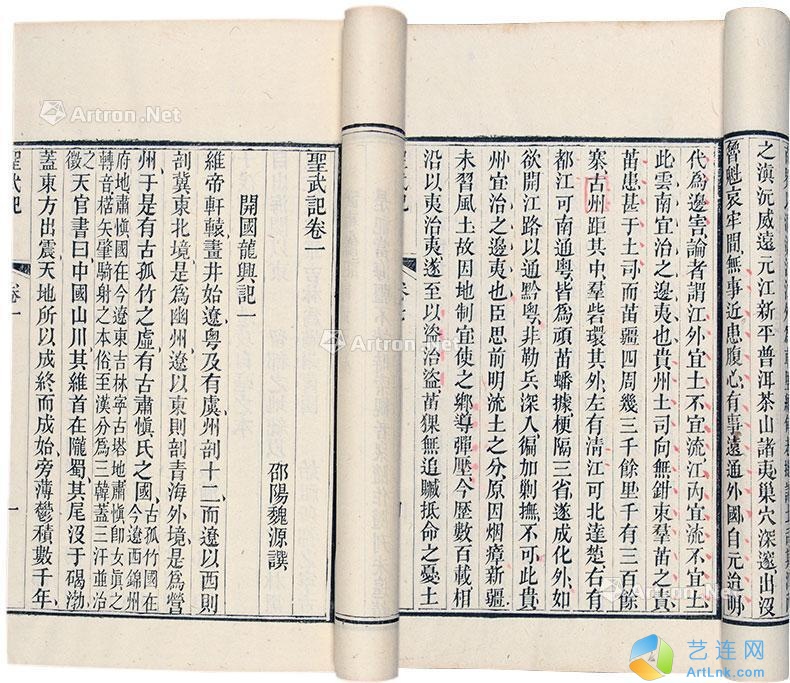 之滇沅威遠元江新平普洱茶山諸夷巢穴深邃出沒
魯魁哀牢間無事近患腹心有事遠通外國自元迨明
代為邊害論者謂江外宜土不宜流江內宜流不宜土
此雲南宜治之邊夷也貴州土司向無鉗束羣苗之責
苗患甚于土司而苗疆四周幾三千餘里千有三百餘
寨古州距其中羣砦環其外左有清江可北達楚右有
都江可南通粵皆為頑苗蟠據梗隔三省遂成化外如
欲開江路以通黔粵非勒兵深入徧加剿撫不可此貴
州宜治之邊夷也臣思前明流土之分原因烟瘴新疆
未習風土故因地制宜使之鄉導彈壓今歷數百載相
沿以夷治夷遂至以盜治盜苗猓無追贓抵命之憂土
聖武記卷一
開國龍興記一
邵陽魏源譔
維帝軒轅畫井始遼粵及有虞州剖十二而遼以西則
剖冀東北境是爲幽州遼以東則剖青海外境是爲營
州于是有古孤竹之虛有古肅愼氏之國古孤竹國在今遼西錦州
府地肅愼國在今遼東吉林寧古塔地肅愼卽女眞之
轉音楛矢肇騎射之本俗至漢分爲三韓蓋三汗並治
之徵天官書曰中國山川其維首在隴蜀其尾沒于碣渤
蓋東方出震天地所以成終而成始旁薄鬱積數千年
聖武記
卷一
一
Artron.Net
Artron.Net
Artron.Net
Artron.Net
艺连网
ArtLnk.com